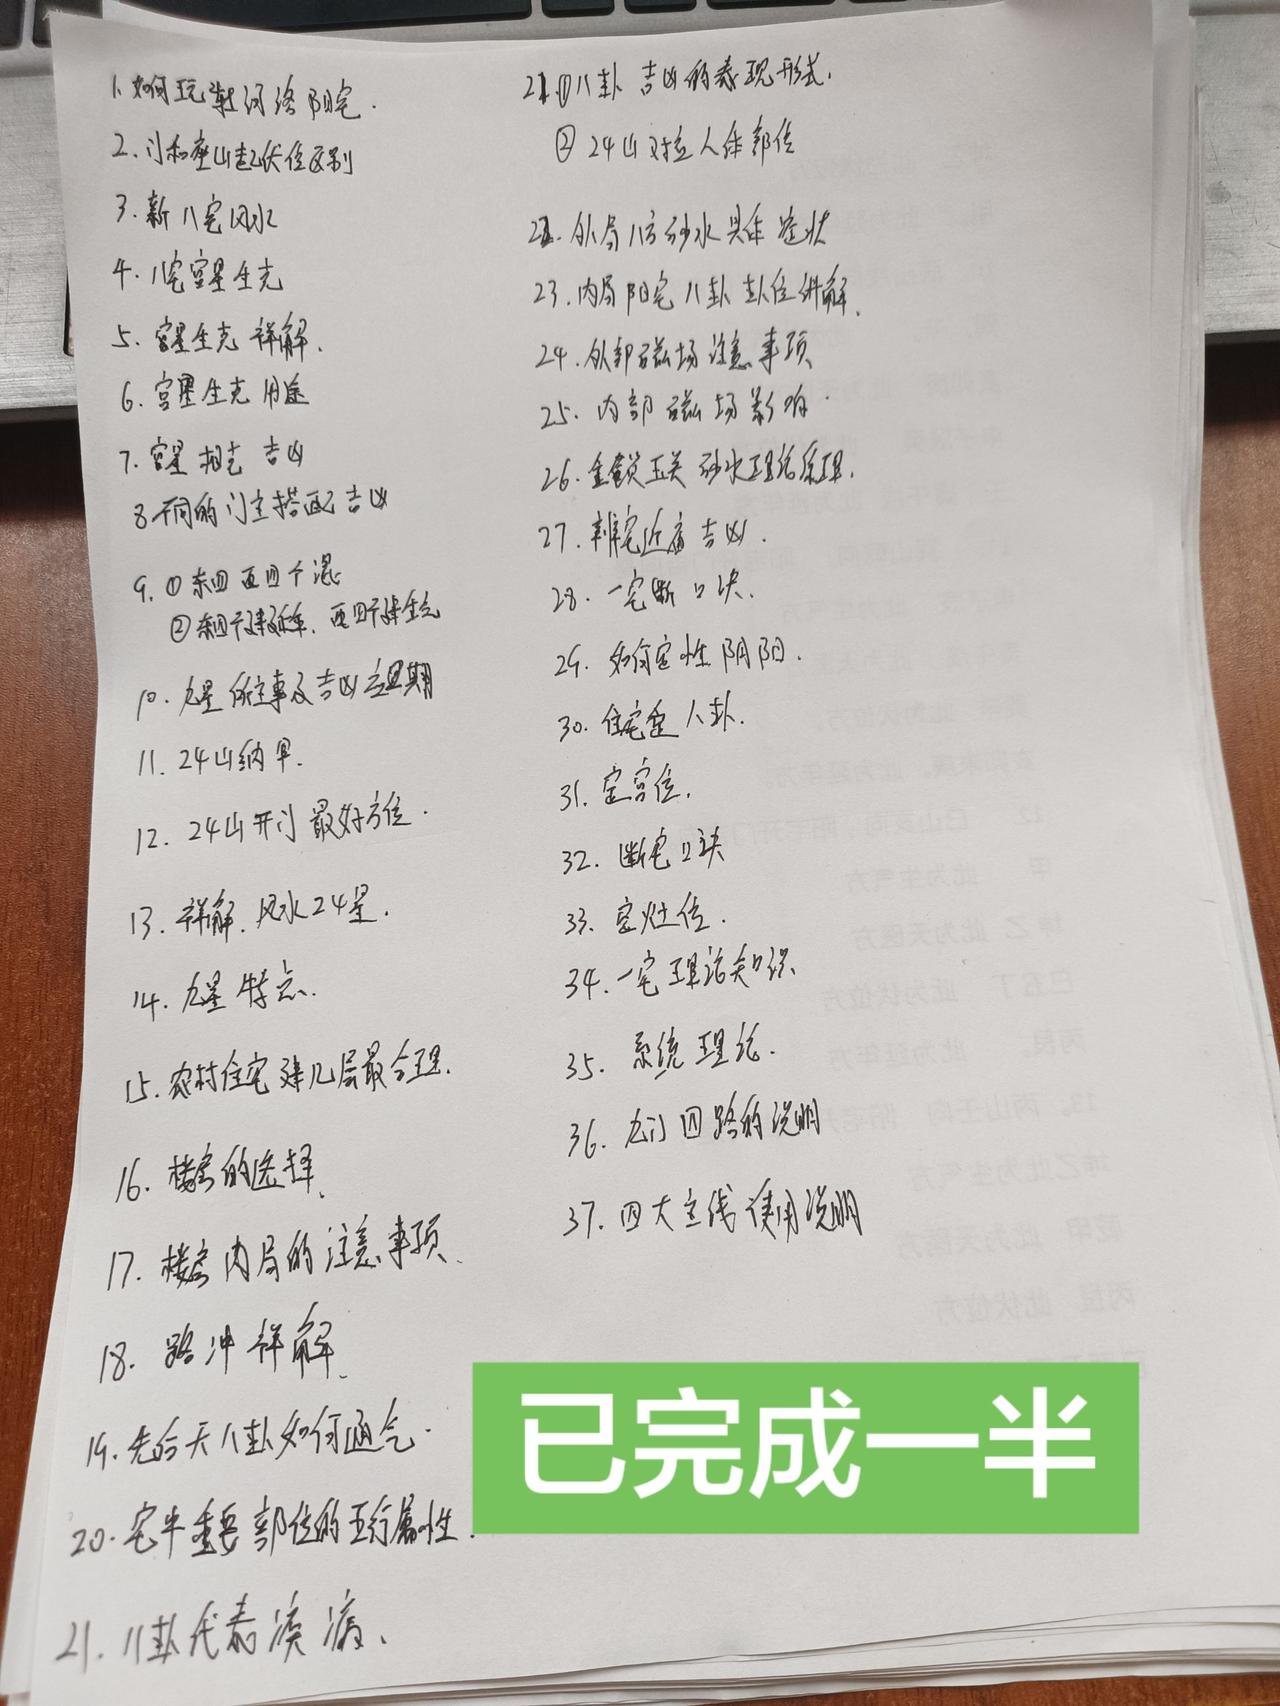 1. 如何玩转河洛阳宅.
2. 门和座山起伏位区别
3. 新八宅风水
4. 八宅宫星生克
5. 宫星生克 详解.
6. 宫星生克 用途
7. 宫星相克 吉凶
8 不同的门主搭配吉凶
9. ①东四西四个混
②东四 延年. 西四 生气
10. 九星所主事及吉凶应期
11. 24山纳甲.
12. 24山开门最好方位.
13. 详解. 风水24星.
14. 九星特点.
15. 农村住宅建几层最合理.
16. 楼房的选择.
17. 楼房内局的注意事项.
18. 路冲详解.
19. 先后天八卦如何通气.
20. 宅中重要部位的五行属性.
21. 八卦代表疾病.
21. ①八卦 吉凶的表现形式.
② 24山对应人体部位
22. 外局八方砂水具体症状
23. 内局阳宅八卦 卦位讲解.
24. 外部磁场注意事项
25. 内部磁场影响.
26. 金锁玉关 砂水理论原理.
27. 吉凶.
28. 一宅断口诀.
29. 如何定性阴阳.
30. 住宅定八卦.
31. 定宫位.
32. 断宅口诀
33. 定灶位.
34. 一宅理论知识.
35. 系统理论.
36. 九门四路的说明
37. 四大主线使用说明
已完成一半